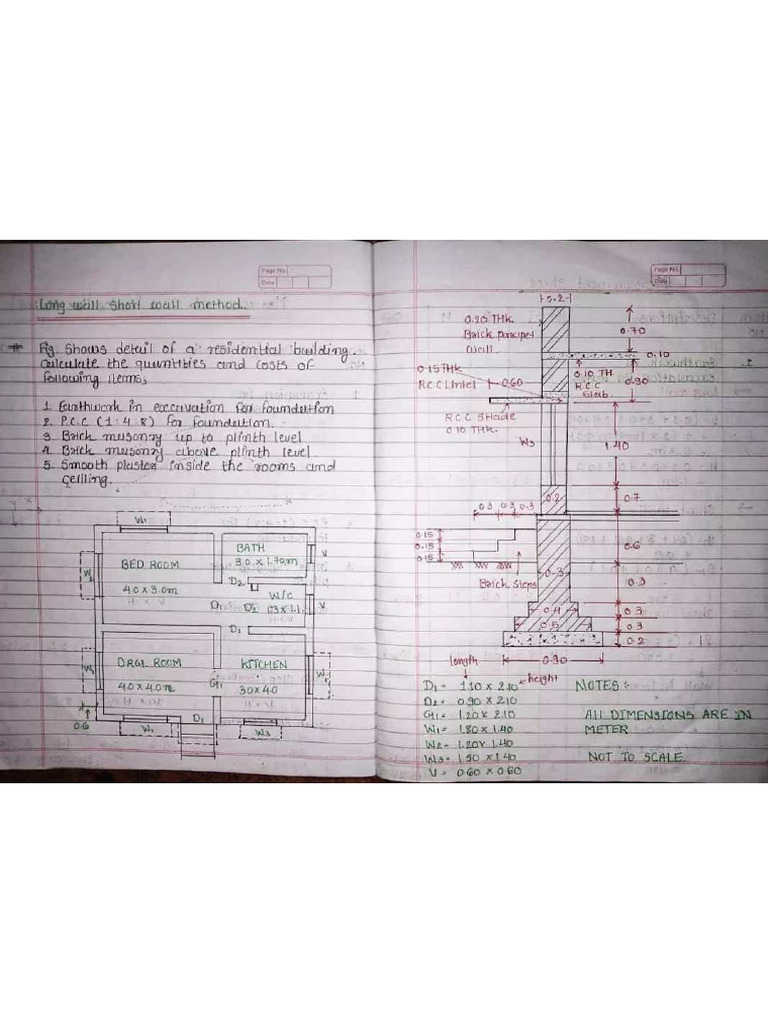 Page No.
Date
Long wall short wall method.
* Fig. shows detail of a residential building.
calculate the quantities and costs of
following items;
1. Earthwork in excavation for foundation
2. P.C.C (1:4:8) for foundation.
3. Brick masonry up to plinth level
4. Brick masonry above plinth level
5. Smooth plaster inside the rooms and
ceiling.
W1
BED ROOM
4.0 x 3.0m
BATH
3.0 x 1.70m
V
W2
D2
W/C
D1
D2
1.3 x 1.1
V
D1
DRAL ROOM
4.0 x 4.0m
KITCHEN
3.0 x 4.0
G1
D1
0.6
W1
W3
Page No.
Date
0.2
0.20 THK.
Brick parapet
wall.
0.70
0.10
0.15 THK
R.C.C Lintel
0.60
0.10 TH
R.C.C
Slab.
0.90
R.C.C Shade
0.10 THK.
W3
1.40
0.2
0.7
0.3 0.3 0.3
0.15
0.15
0.15
Brick Steps
0.6
0.3
0.3
0.4
0.3
0.5
0.3
0.2
0.90
length
height
D1 = 1.10 x 2.10
D2 = 0.90 x 2.10
G1 = 1.20 x 2.10
W1 = 1.80 x 1.40
W2 = 1.20 x 1.40
W3 = 1.50 x 1.40
V = 0.60 x 0.60
NOTES :-
All DIMENSIONS ARE IN
METER
NOT TO SCALE.